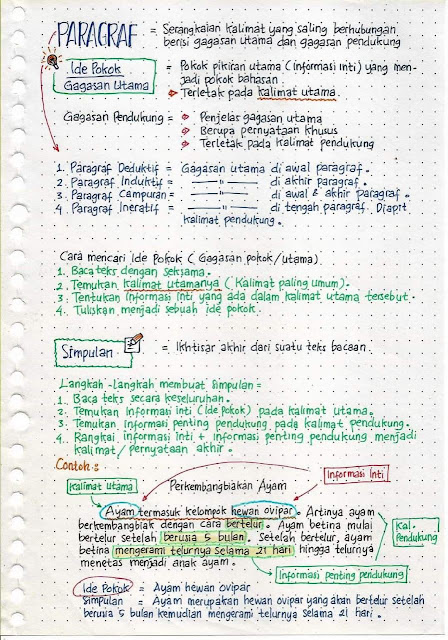 PARAGRAF = Serangkaian kalimat yang saling berhubungan
berisi gagasan utama dan gagasan pendukung
Ide Pokok
Gagasan Utama
= Pokok pikiran utama (informasi inti) yang men-
jadi pokok bahasan.
Terletak pada kalimat utama.
Gagasan Pendukung = Penjelas gagasan utama
Berupa pernyataan khusus
Terletak pada kalimat pendukung
1. Paragraf Deduktif = Gagasan utama di awal paragraf.
2. Paragraf Induktif = —— " —— di akhir paragraf.
3. Paragraf Campuran = —— " —— di awal & akhir paragraf.
4. Paragraf Ineratif = —— " —— di tengah paragraf. Diapit
kalimat pendukung.
Cara mencari Ide Pokok (Gagasan pokok/utama)
1. Baca teks dengan seksama.
2. Temukan kalimat utamanya (Kalimat paling umum).
3. Tentukan informasi inti yang ada dalam kalimat utama tersebut.
4. Tuliskan menjadi sebuah ide pokok.
Simpulan = Ikhtisar akhir dari suatu teks bacaan.
Langkah-langkah membuat simpulan =
1. Baca teks secara keseluruhan.
2. Temukan informasi inti (Ide Pokok) pada kalimat utama.
3. Temukan informasi penting pendukung pada kalimat pendukung.
4. Rangkai informasi inti + informasi penting pendukung menjadi
kalimat/pernyataan akhir.
Contoh :
Informasi Inti
Kalimat utama
Perkembangbiakan Ayam
Ayam termasuk kelompok hewan ovipar. Artinya ayam
berkembangbiak dengan cara bertelur. Ayam betina mulai
bertelur setelah berusia 5 bulan. Setelah bertelur, ayam
betina mengerami telurnya selama 21 hari hingga telurnya
menetas menjadi anak ayam.
Kal.
Pendukung
Informasi penting pendukung
Ide Pokok = Ayam hewan ovipar
Simpulan = Ayam merupakan hewan ovipar yang akan bertelur setelah
berusia 5 bulan kemudian mengerami telurnya selama 21 hari.